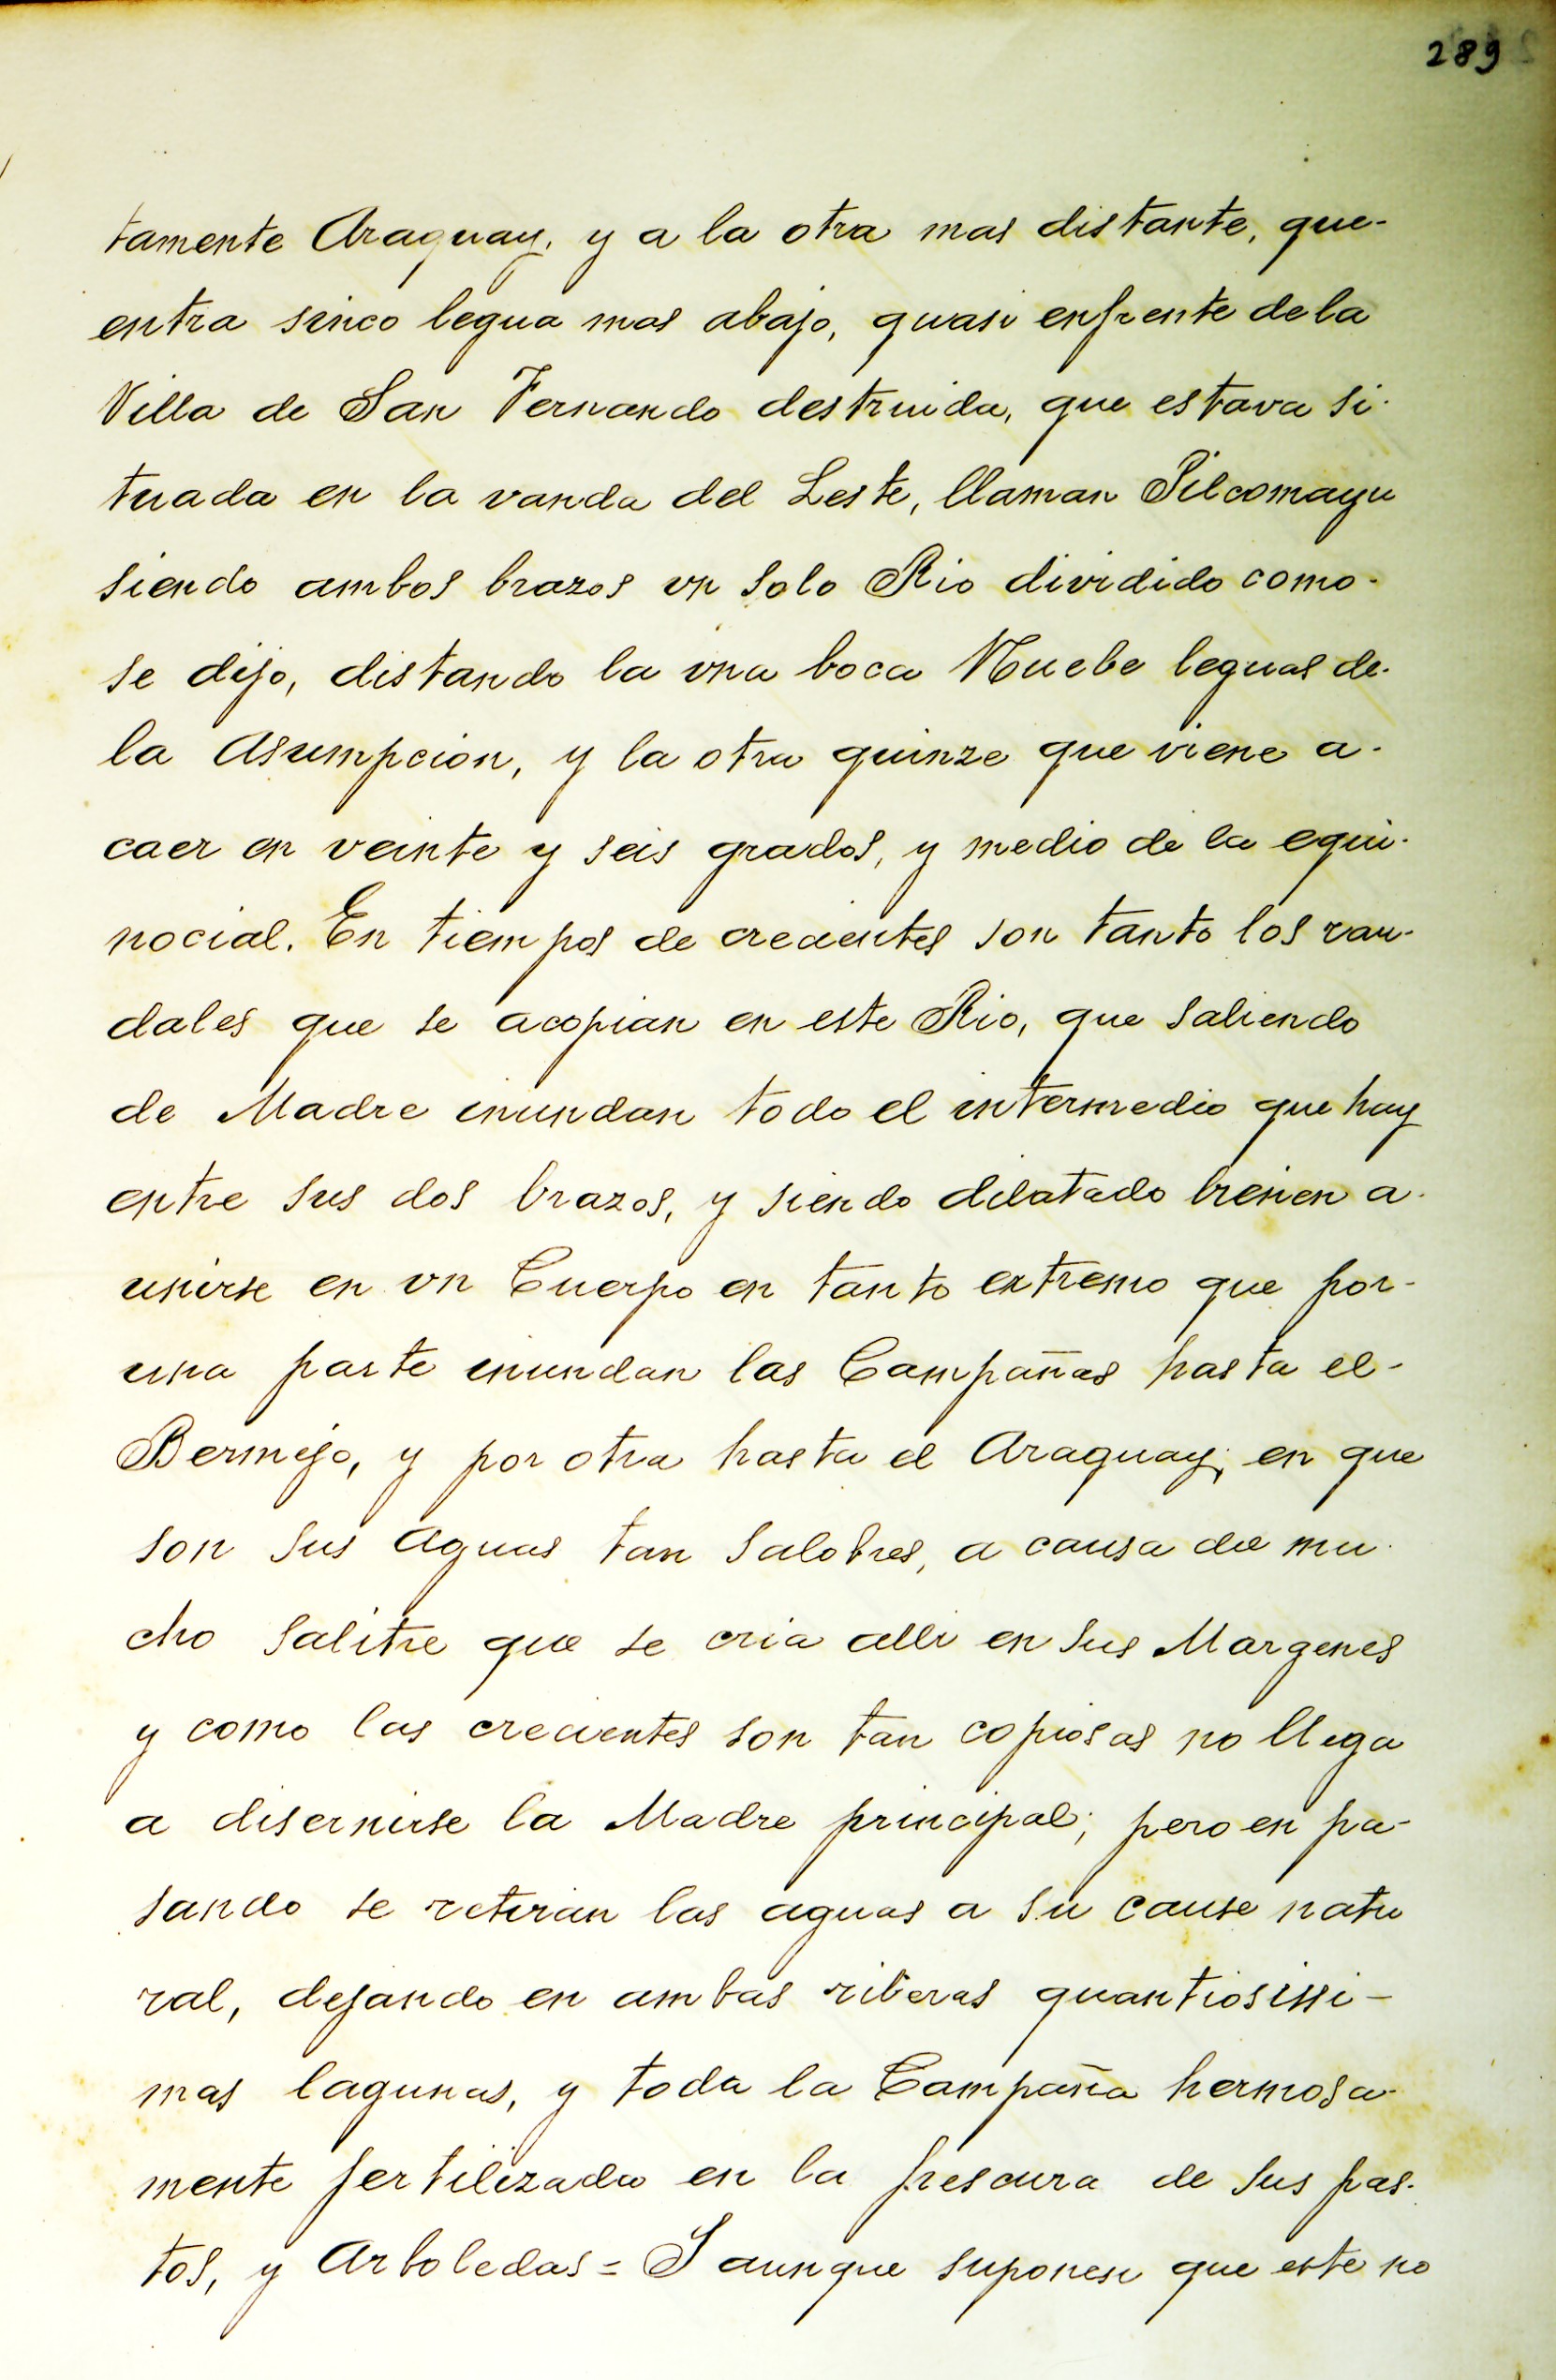 289
tamente Araguay, y a la otra mas distante, que-
entra sinco legua mas abajo, quasi enfrente dela
Villa de San Fernando destruida, que estava si-
tuada en la vanda del Leste, llaman Pilcomayu
siendo ambos brazos vn solo Rio dividido como-
se dijo, distando la vna boca Nuebe leguas de-
la Asumpcion, y la otra quinze que viene a-
caer en veinte y seis grados, y medio de la equi-
nocial. En tiempos de crecientes son tanto los rau-
dales que se acopian en este Rio, que saliendo
de Madre inundan todo el intermedio que hay
entre sus dos brazos, y siendo dilatado bienen a-
unirse en vn Cuerpo en tanto extremo que por-
una parte inundan las Campañas hasta el-
Bermejo, y por otra hasta el Araguay, en que
son sus aguas tan salobres, a causa de mu-
cho salitre que se cria alli en sus Margenes
y como las crecientes son tan copiosas no llega
a disernirse la Madre principal; pero en pa-
sando se retiran las aguas a su cause natu
ral, dejando en ambas riberas quantiosissi-
mas lagunas, y toda la Campaña hermosa-
mente fertilizada en la frescura de sus pas-
tos, y Arboledas = I aunque suponen que este no